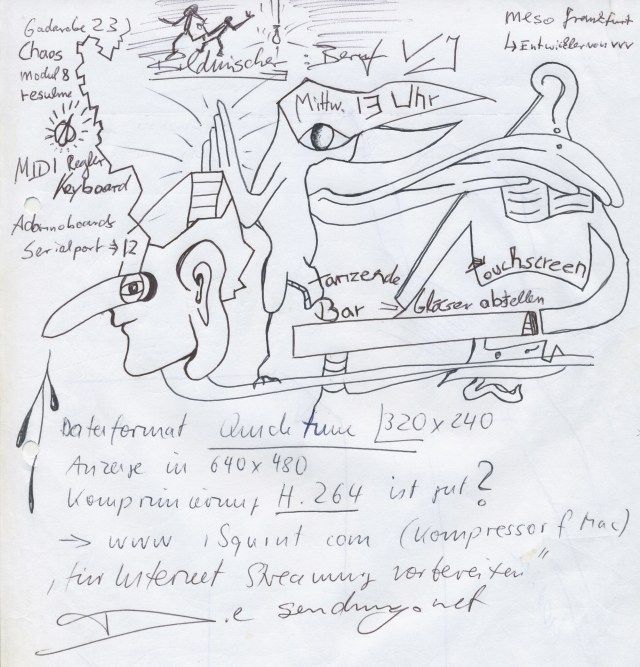 Gaderobe 23)
Chaos
modul 8
resulme
MIDI Regler
Keyboard
Adornoboards
Serialport → 12
Bildnischer Beruf VJ
Mittw. 13 Uhr
meso frankfurt
↳ Entwickler von VVVV
?
Touchscreen
tanzende
Bar → Gläser abstellen
Dateiformat Quicktime 320 x 240
Anzeige in 640 x 480
Komprimierung H.264 ist gut?
→ www iSquint com (Kompressor f Mac)
"für Internet Streaming vorbereiten"
sendung.net